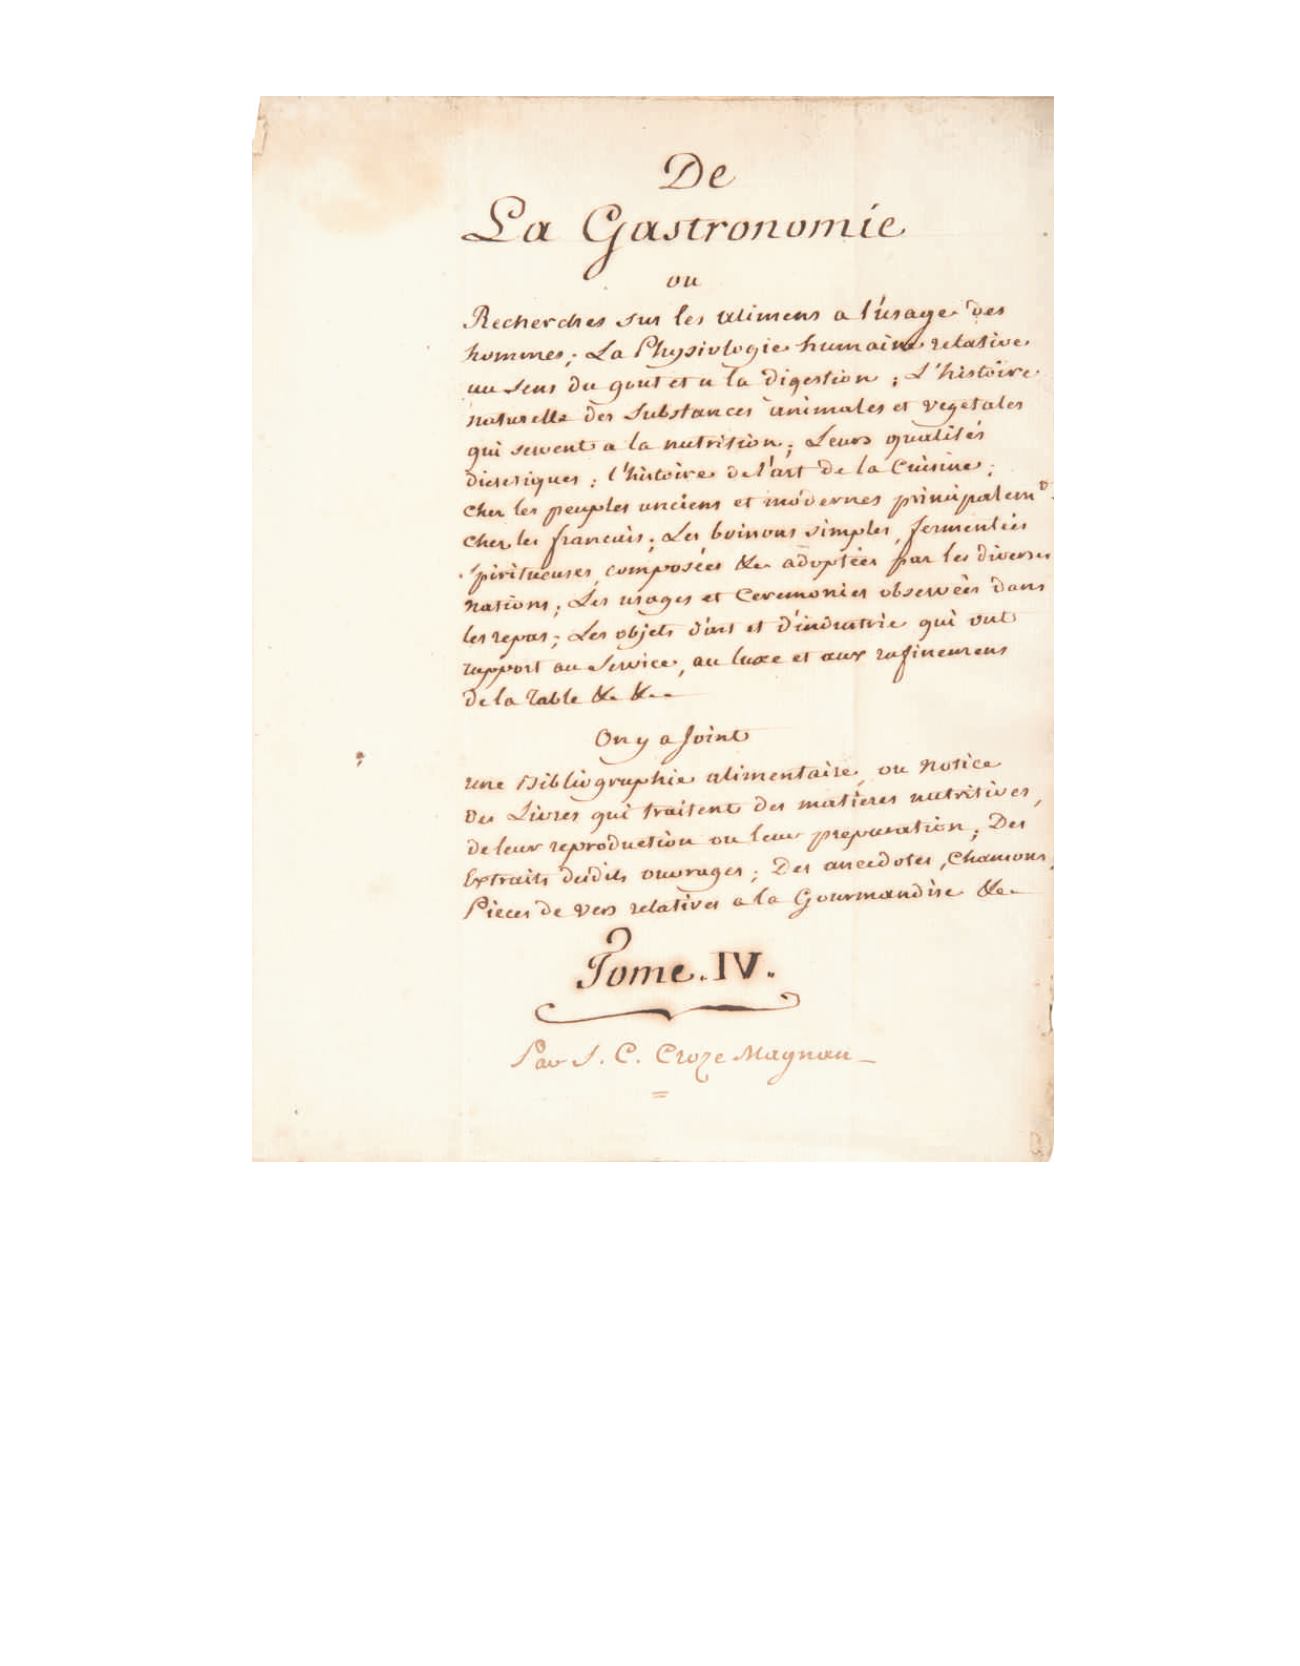 De
La Gastronomie
ou
Recherches sur les alimens a l'usage des
hommes; La Physiologie humaine relative
au sens du gout et a la digestion; L'histoire
naturelle des substances animales et vegetales
qui servent a la nutrition; Leurs qualités
dietetiques; l'histoire de l'art de la Cuisine;
chez les peuples anciens et modernes principalemt.
chez les francais; Les boissons simples, fermentées
spiritueuses, composées &c. adoptées par les diverses
nations; Les usages et Ceremonies observeés dans
les repas; Les objets d'art et d'industrie qui ont
rapport au Service, au luxe et aux rafinemens
de la Table &c. &c.
On y a Joint
une Bibliographie alimentaire, ou Notice
Des Livres qui traitent des matieres nutritives,
de leur reproduction ou leur preparation; Des
Extraits desdits ouvrages; Des anecdotes, Chansons,
Pieces de vers relatives a la Gourmandise &c.
Tome. IV.
Par J. C. Croze Magnan